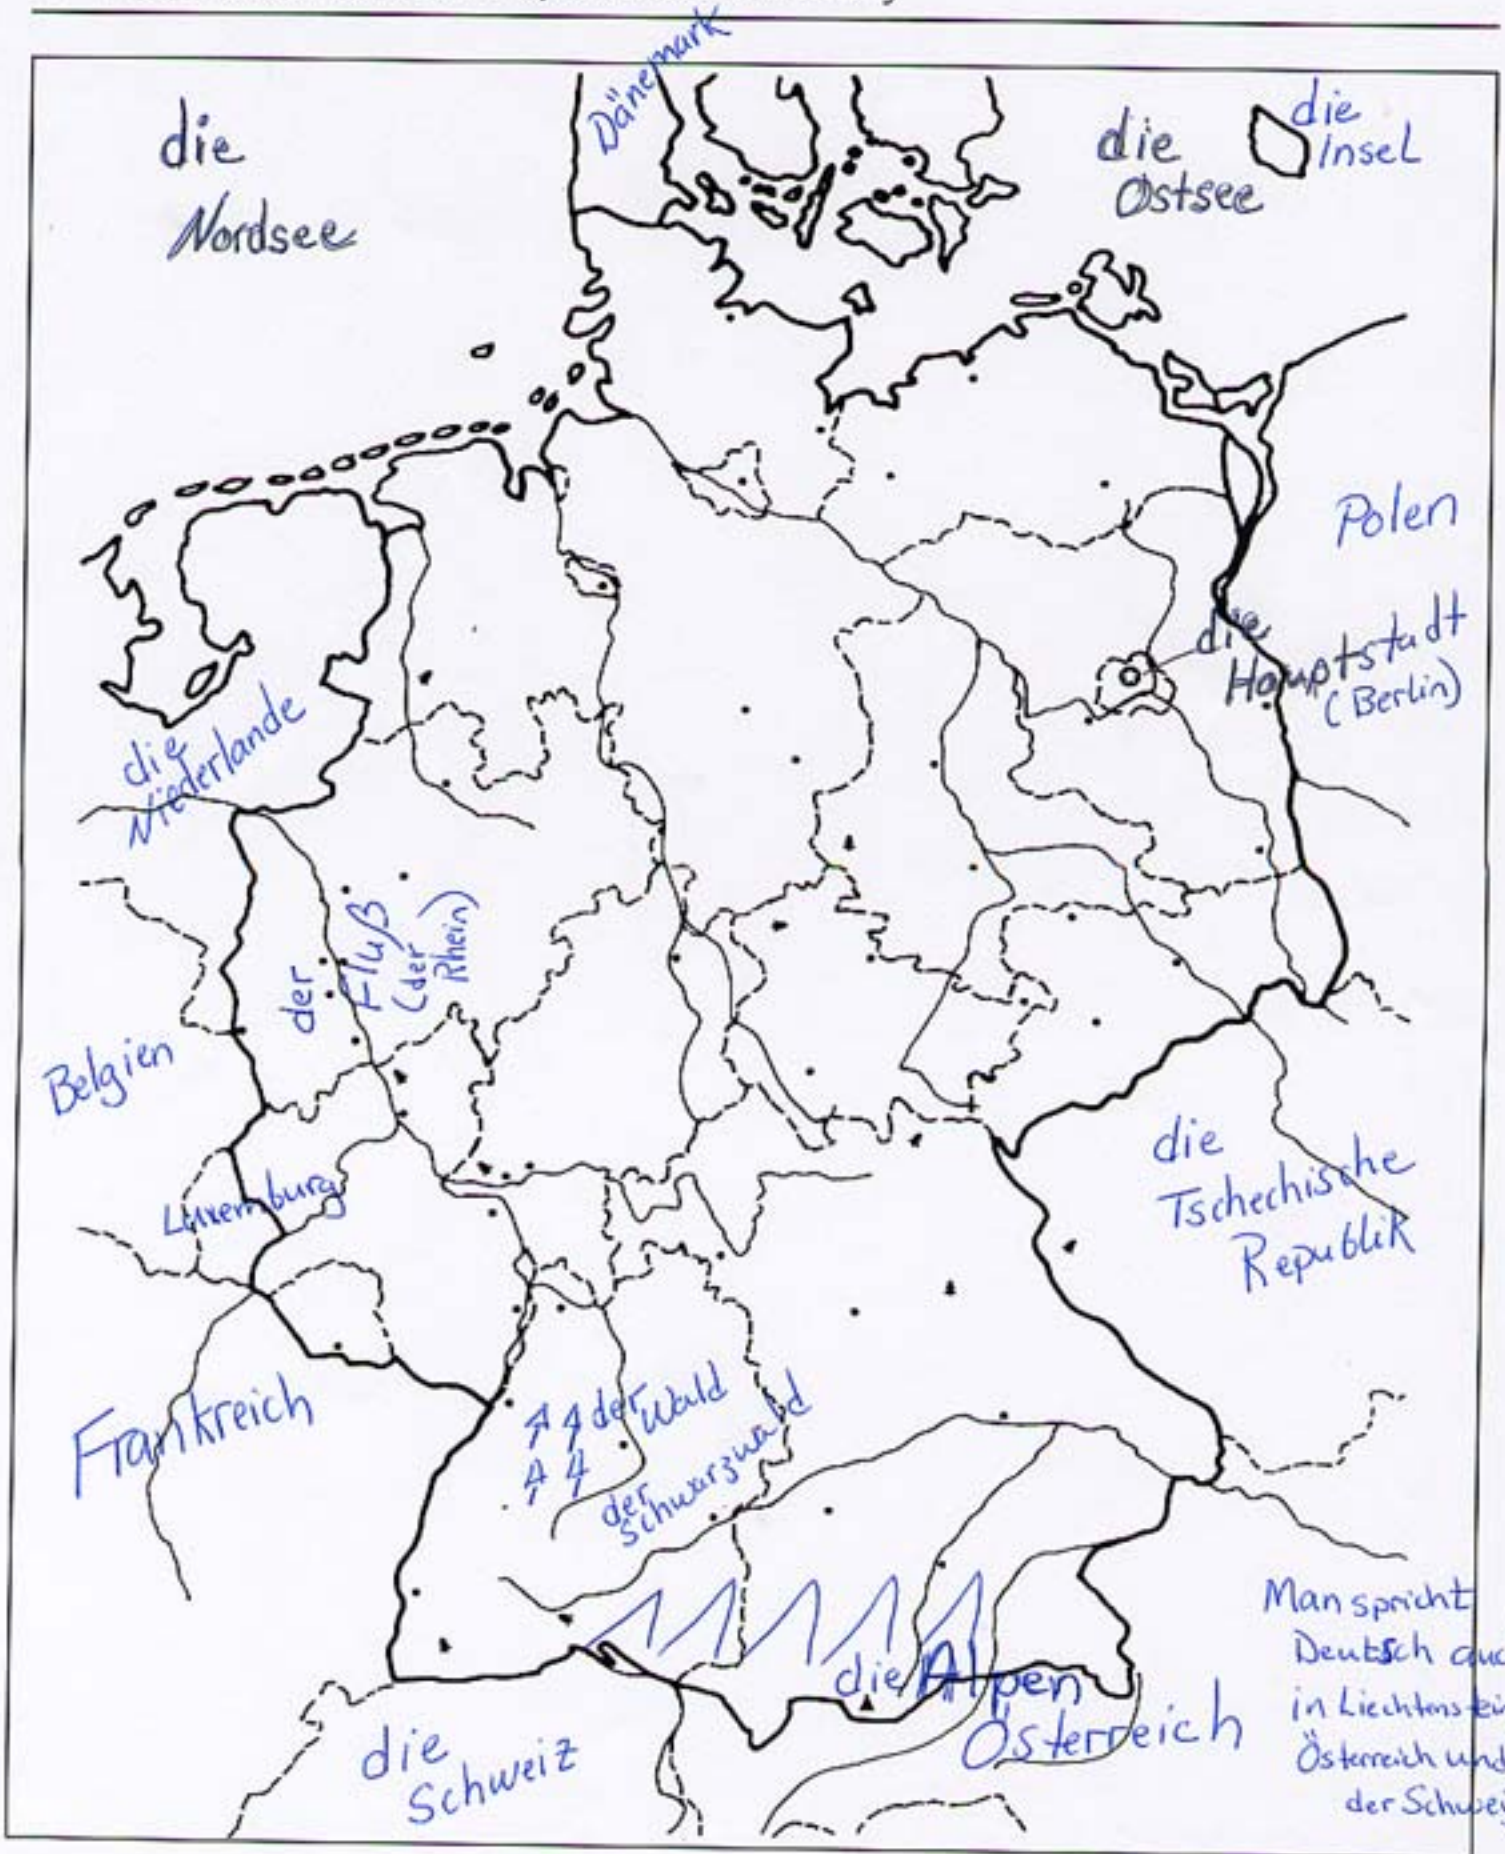 Dänemark
die
Nordsee
die
Ostsee
die
Insel
Polen
die
Hauptstadt
(Berlin)
die
Niederlande
der
Fluß
(der
Rhein)
Belgien
Luxemburg
die
Tschechische
Republik
Frankreich
der
Wald
der
Schwarzwald
die Alpen
Österreich
die
Schweiz
Man spricht
Deutsch auc
in Liechtenstein
Österreich und
der Schwei